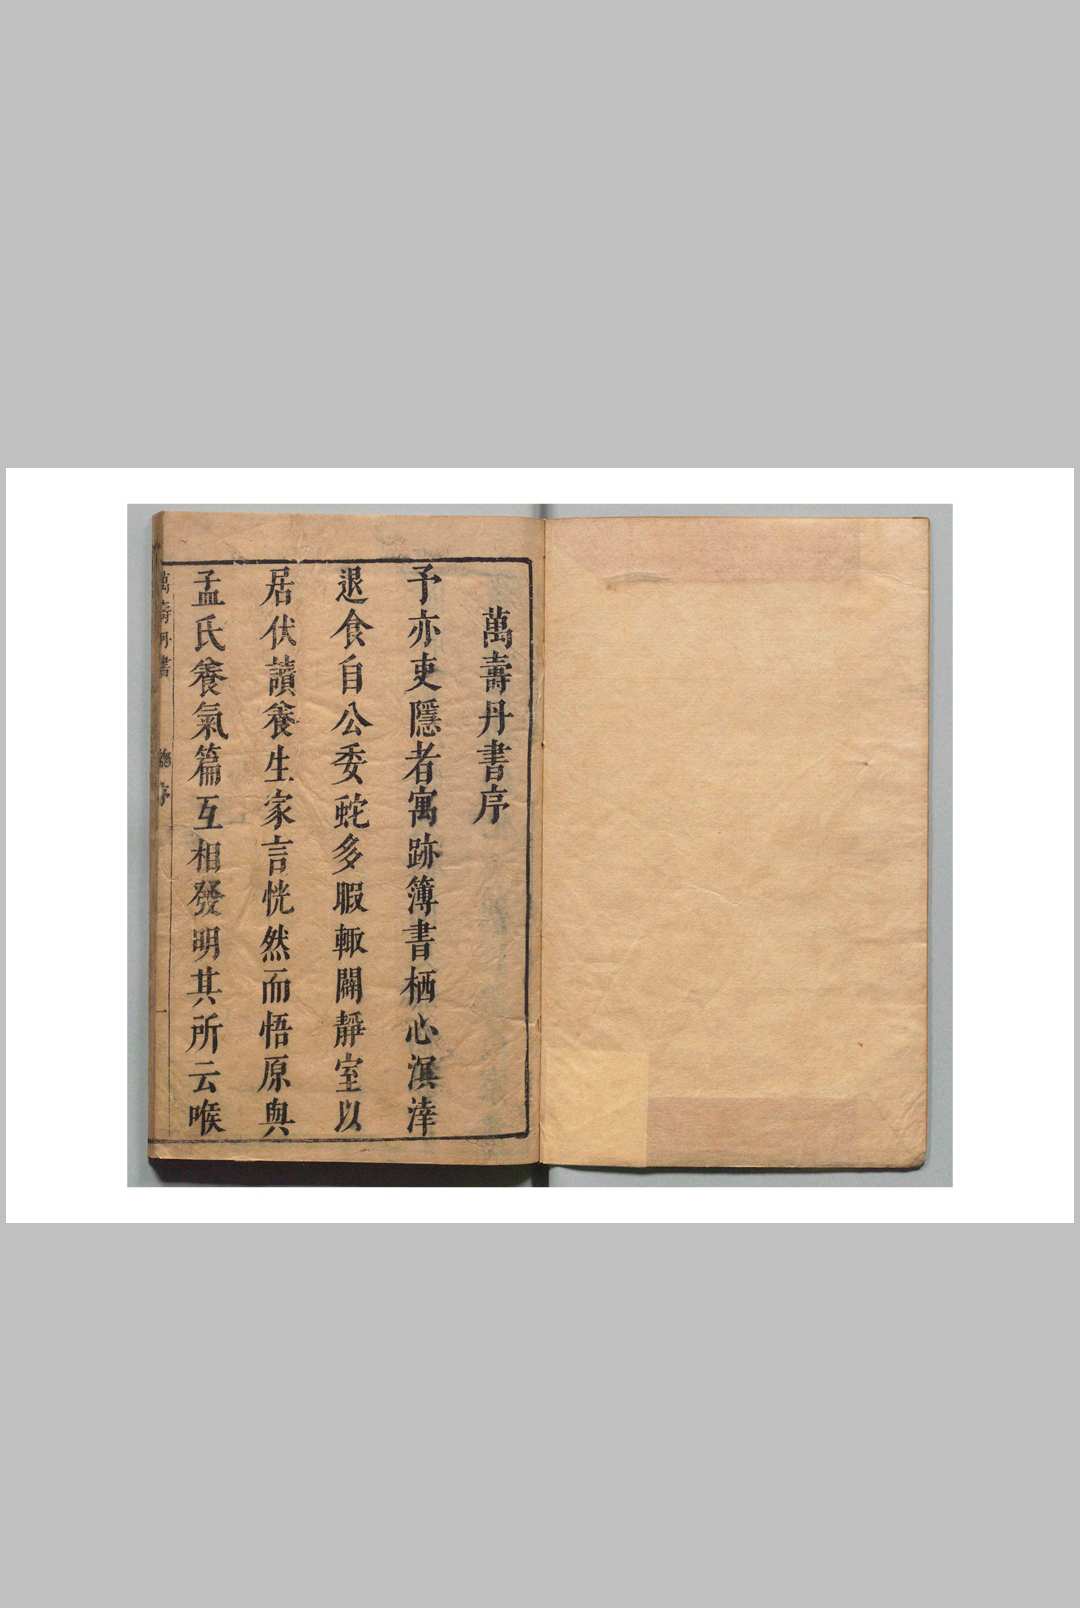 萬壽丹書序
予亦吏隱者寓跡簿書栖心溟涬
退食自公委蛇多暇輙闢靜室以
居伏讀養生家言恍然而悟原與
孟氏養氣篇互相發明其所云喉
萬壽丹書 總序 一